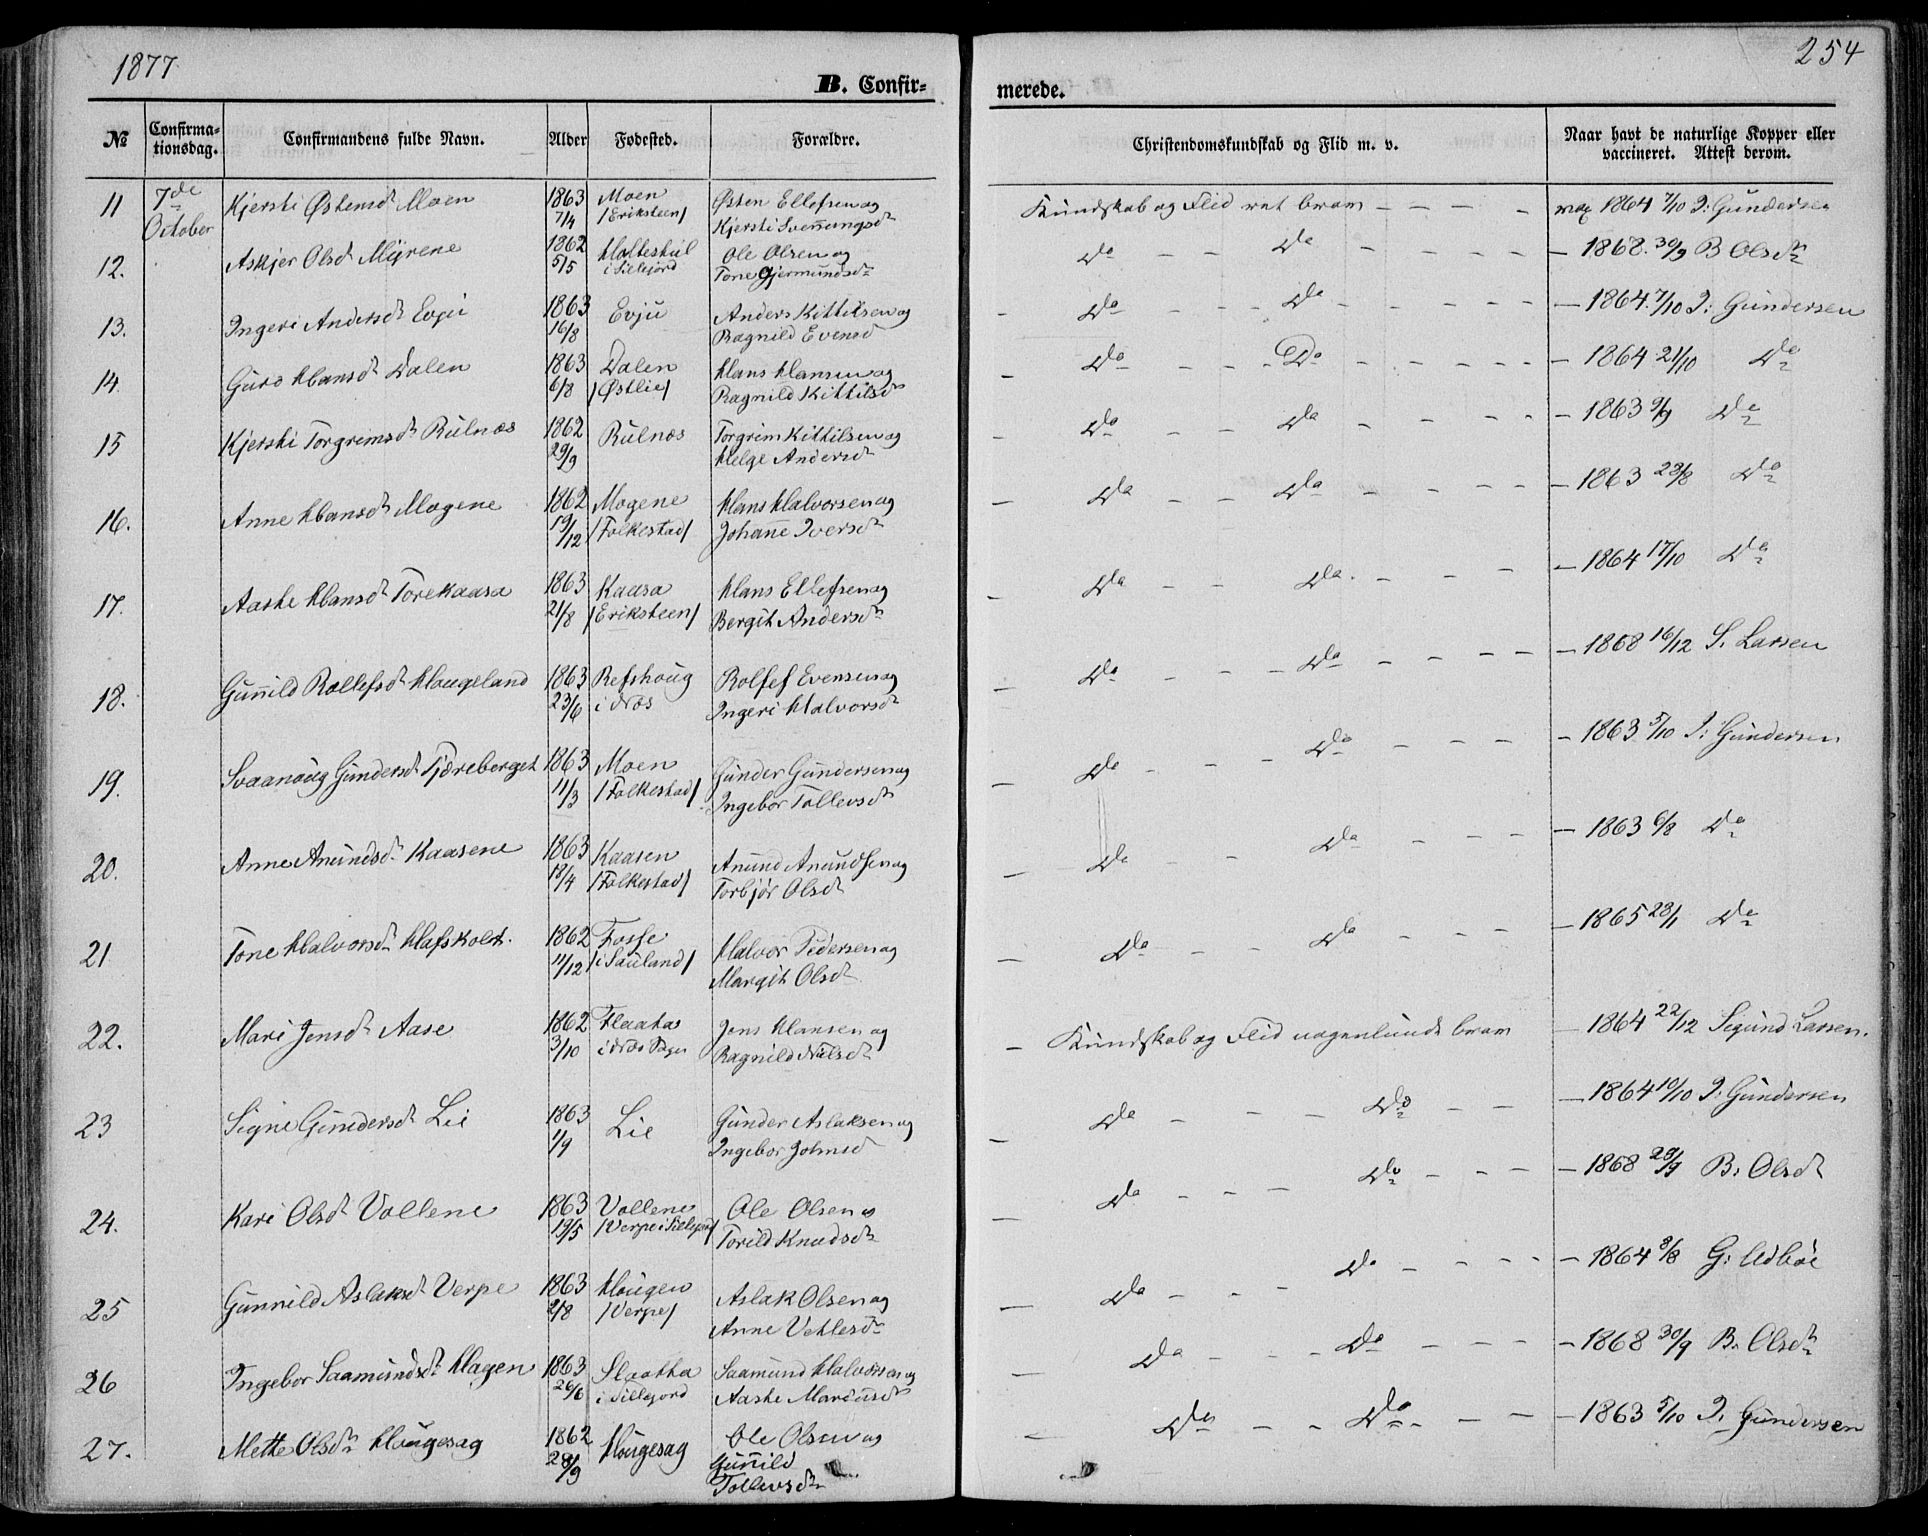 1877
254
B. Confirmerede.
№ Confirmationsdag. Confirmandens fulde Navn. Alder Fødested. Forældre. Christendomskundskab og Flid m. v. Naar havt de naturlige Kopper eller vaccineret. Attest derom.
11 7de October Kjersti Østensdt Moen 1863 7/4 Moen /Eriksteen/ Østen Ellefsen og Kjersti Svenungsdt Kundskab og Flid ret bram - - - - vac 1864 7/10 I: Gundersen
12. Askjer Olsdt Myrene 1862 5/5 Holteskul i Sillejord Ole Olsen og Tone Gjermundsdt Do - - Do - - - - - 1868. 30/9 B Olsdt
13. Ingeri Andersdt Evju 1863 16/8 Evju Anders Kittilsen og Ragnild Evensd - Do - - - Do - - - - - 1864. 7/10 I: Gundersen
14. Guro Hansdt Dalen 1863 6/8 Dalen /Østlie/ Hans Hansen og Ragnild Kittilsdt - Do - - - Do - - - - - 1864 21/10 Do
15 Kjersti Torgrimsdt Rulnæs 1862 29/9 Rulnæs Torgrim Kittilsen og Helge Andersdt - Do - - Do - - - - - 1863 9/9 Do
16. Anne Hansdt Mogene 1862 19/12 Mogene /Folkestad/ Hans Halvorsen og Johane Iversdt - Do - - Do - - - - - 1863 28/8 Do
17. Aaste Hansdt Torekaasa 1863 21/8 Kaasa /Eriksteen/ Hans Ellefsen og Bergit Andersdt - Do - - Do. - - - - 1864 17/10 Do
18. Gunild Rollefsdt Haugeland 1863 23/6 Refshoug i Næs Rolfef Evensen og Ingeri Halvorsdt - Do - - - Do - - - - - 1868 16/12 S. Larsen
19. Svaanoug Gundersdt Tjæreberget 1863 11/3 Moen /Folkestad/ Gunder Gundersen og Ingebor Tollevsdt - Do - - - Do - - - - 1863 5/10 I: Gundersen
20. Anne Anundsdt Kaasene 1863 18/4 Kaasen /Folkestad/ Anund Anundsen og Torbjør Olsdt - Do - - Do - - - - 1863 6/8 Do
21 Tone Halvorsdt Hafskolt. 1862 11/12 Fosse /i Sauland/ Halvor Pedersen og Margit Olsdt Do - - Do - - - - 1865 28/1 Do
22. Mari Jensdt Aase 1862 3/10 Flaata i Næs Jens Hansen og Ragnild Nilsdt - Kundskab og Flid nogenlunde bram - 1864 22/12 Sigund Larsen.
23 Signe Gundersdt Lie 1863 1/9 Lie Gunder Aslaksen og Ingebor Johnsd - Do - - - Do - - - 1864 10/10 I: Gundersen
24. Kari Olsdt Vollene 1863 19/5 Vollene /Verpe i Sillejord/ Ole Olsen og Torild Knudsdt - Do - - - Do - - - - 1868 28/9 B: Olsdt
25 Gunnild Aslaksdt Verpe 1863 2/8 Hougen /Verpe/ Aslak Olsen og Anne Vetlesdt - Do - - - Do - - - - - 1864 8/8 G: Udbøe
26 Ingebor Saamundsdt Hagen 1863 26/6 Slaatta i Sillejord Saamund Halvorsen og Aaste Mariusdt - Do - - - Do - - - - 1868 30/9 B. Olsdt
27. Mette Olsdt Hougesag 1862 28/9 Hougesag Ole Olsen og Gunild Tollevsdt - Do - - Do - - - 1863 5/10 I. Gundersen